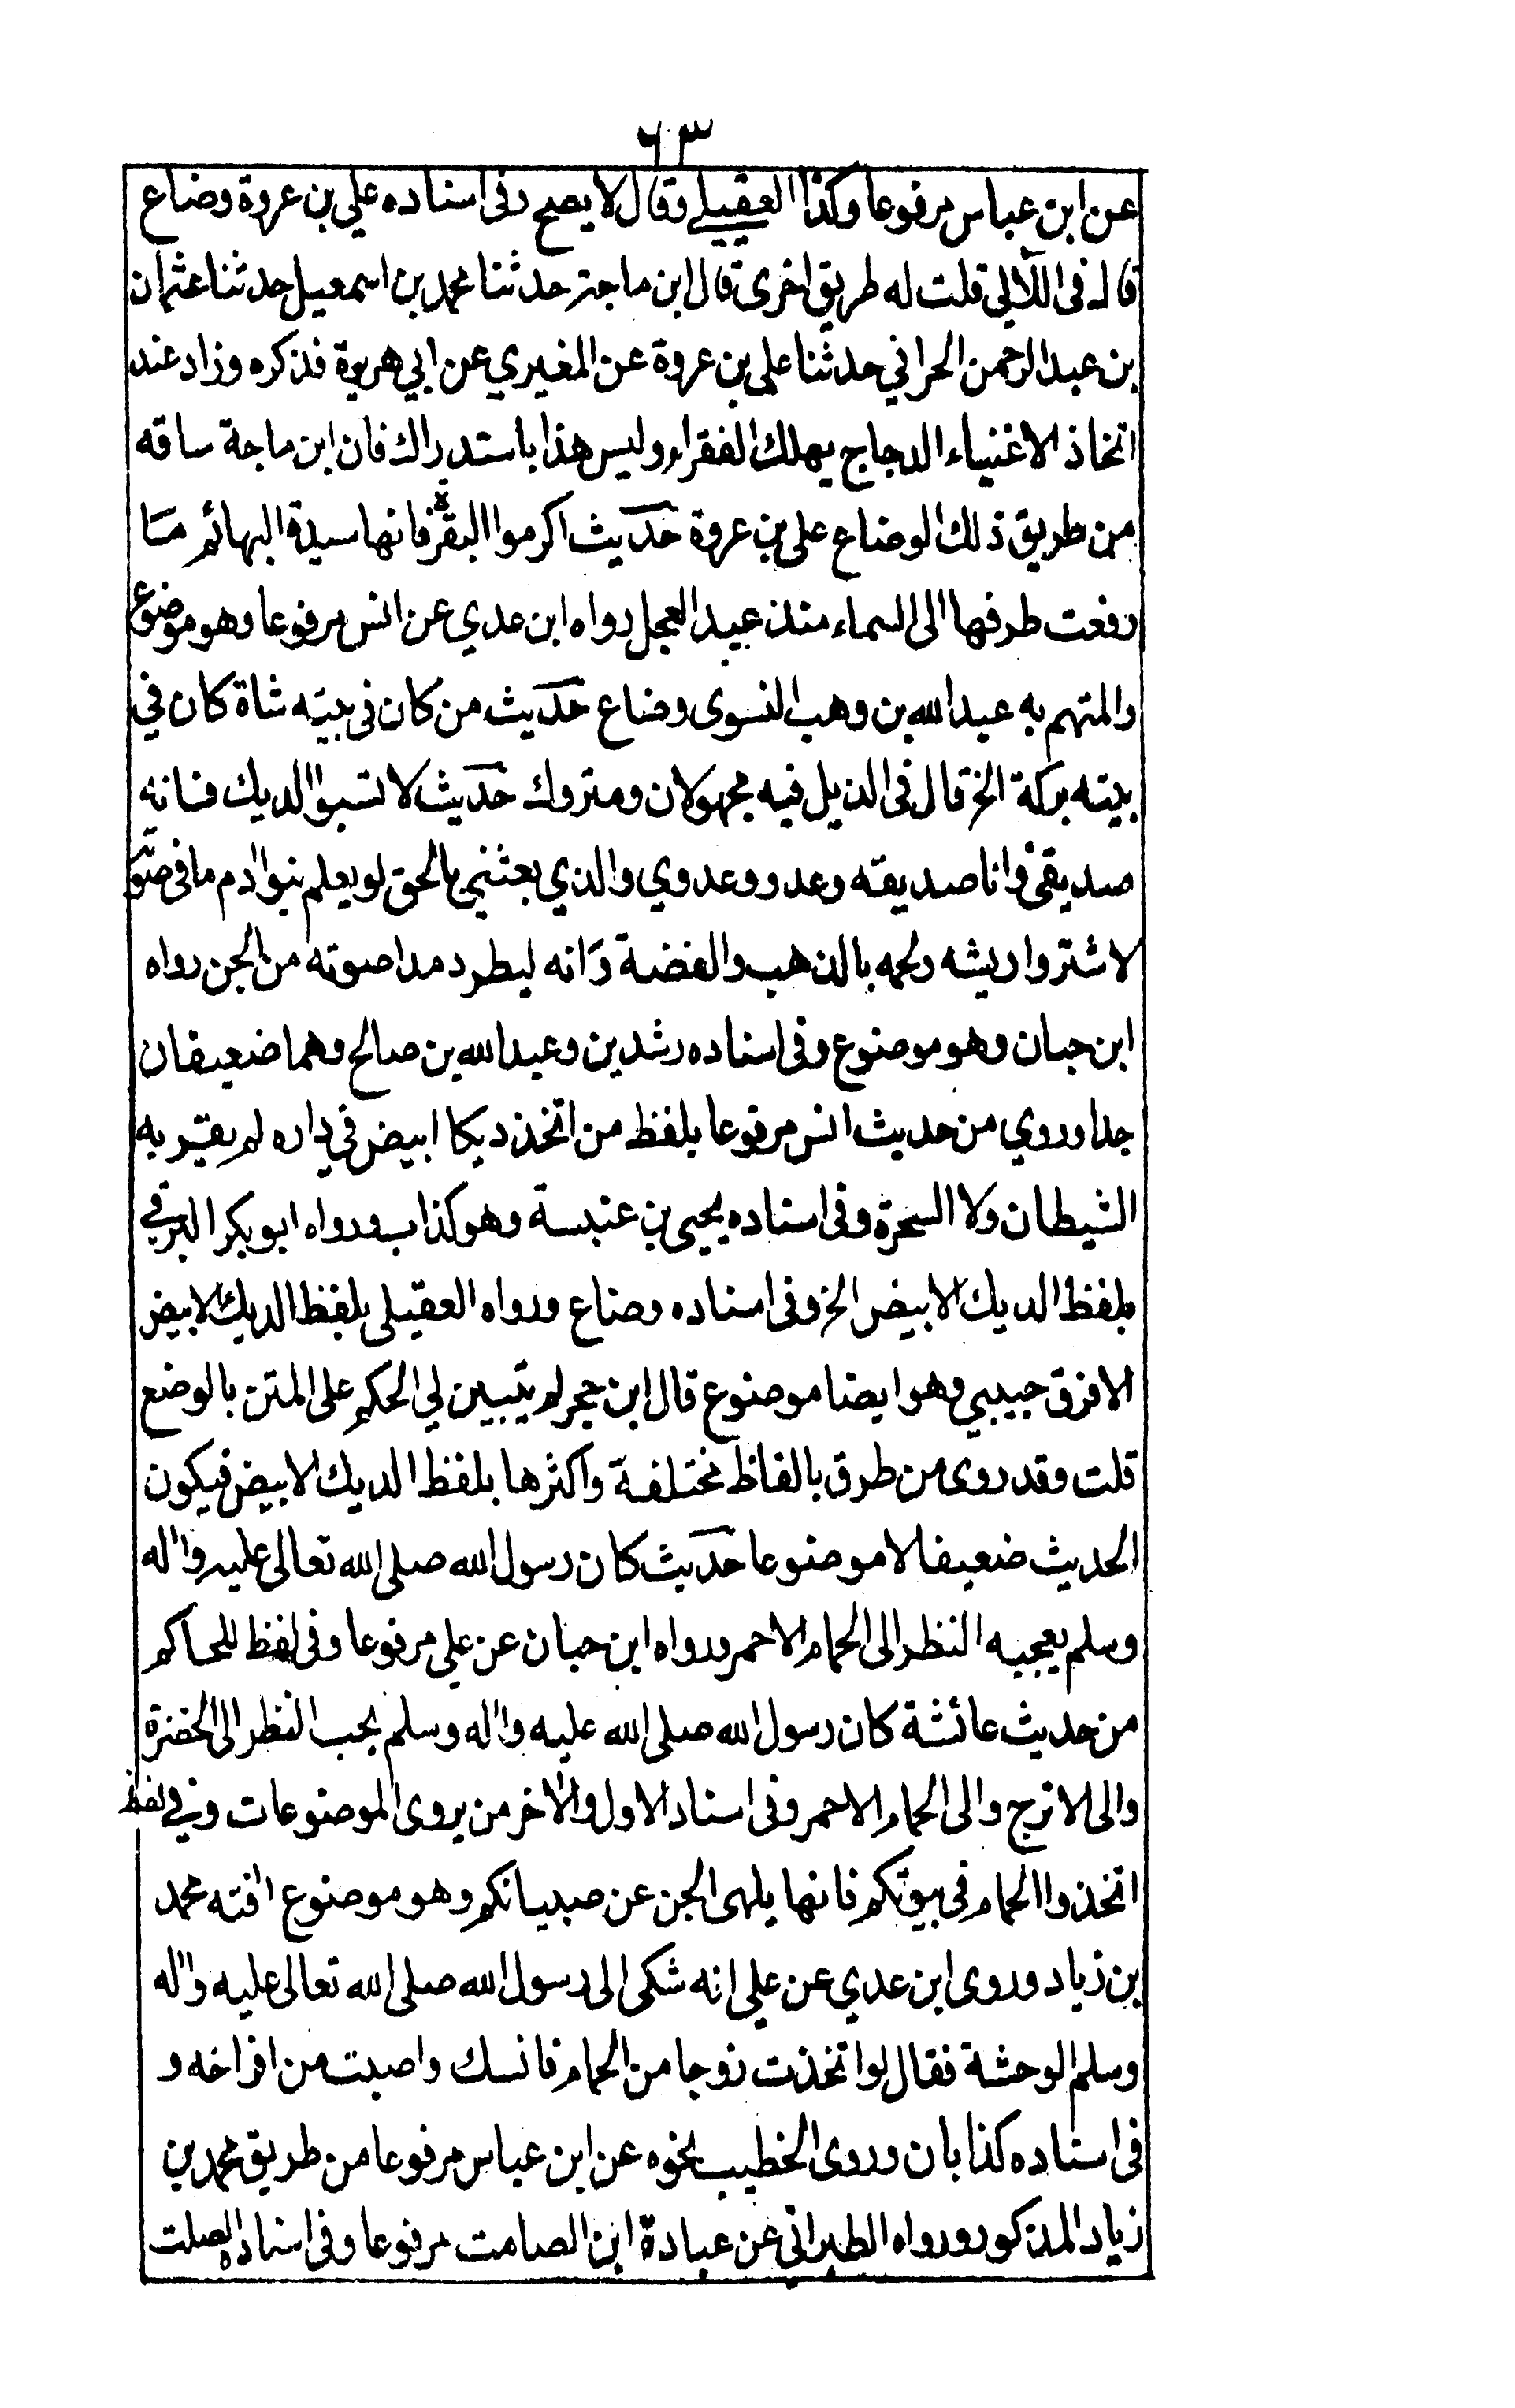 ٦٣
عن ابن عباس مرفوعا وكذا العقيلي وقال لا يصح وفى اسناده علي بن عروة وضاع
قال فى اللآلي قلت له طريق اخرى قال ابن ماجة حدثنا محمد بن اسمعيل حدثنا عثمان
بن عبد الرحمن الحراني حدثنا علي بن عروة عن المغيري عن ابي هريرة فذكره وزاد عند
اتخاذ الاغنياء الدجاج يهلك الفقراء وليس هذا باستدراك فان ابن ماجة ساقه
من طريق ذلك الوضاع علي بن عروة حديث اكرموا البقرة فانها سيدة البهائم ما
رفعت طرفها الى السماء منذ عبد العجل رواه ابن عدي عن انس مرفوعا وهو موضوع
والمتهم به عبد الله بن وهب النسوى وضاع حديث من كان فى بيته شاة كان في
بيته بركة الخ قال فى الذيل فيه مجهولان ومتروك حديث لا تسبوا الديك فانه
صديقي وانا صديقه وعدوه عدوي والذي بعثني بالحق لو يعلم بنوا ادم ما فى صوته
لاشتروا ريشه ولحمه بالذهب والفضة وانه ليطرد مدا صوته من الجن رواه
ابن حبان وهو موضوع وفى اسناده رشدين وعبد الله بن صالح وهما ضعيفان
جدا وروي من حديث انس مرفوعا بلفظ من اتخذ ديكا ابيض في داره لم يقربه
الشيطان ولا السحرة وفى اسناده يحيى بن عنبسة وهو كذاب ورواه ابو بكر البرقي
بلفظ الديك الابيض الخ وفى اسناده وضاع ورواه العقيلى بلفظ الديك الابيض
الافرق حبيبي وهو ايضا موضوع قال ابن حجر لم يتبين لي الحكم على المتن بالوضع
قلت وقد روى من طرق بالفاظ مختلفة واكثرها بلفظ الديك الابيض فيكون
الحديث ضعيفا لا موضوعا حديث كان رسول الله صلى الله تعالى عليه واله
وسلم يعجبه النظر الى الحمام الاحمر ورواه ابن حبان عن علي مرفوعا وفى لفظ للحاكم
من حديث عائشة كان رسول الله صلى الله عليه واله وسلم يحب النظر الى الخضرة
والى الاترج والى الحمام الاحمر وفى اسناد الاول والآخر من يروى الموضوعات وفي لفظ
اتخذوا الحمام فى بيوتكم فانها يلهى الجن عن صبيانكم وهو موضوع افته محمد
بن زياد وروى ابن عدي عن علي انه شكى الى رسول الله صلى الله تعالى عليه واله
وسلم الوحشة فقال لو اتخذت زوجا من الحمام فانسك واصبت من افراخه و
فى اسناده كذابان وروى الخطيب نحوه عن ابن عباس مرفوعا من طريق محمد بن
زياد المذكور ورواه الطبرانى عن عبادة ابن الصامت مرفوعا وفى اسناده الصلت